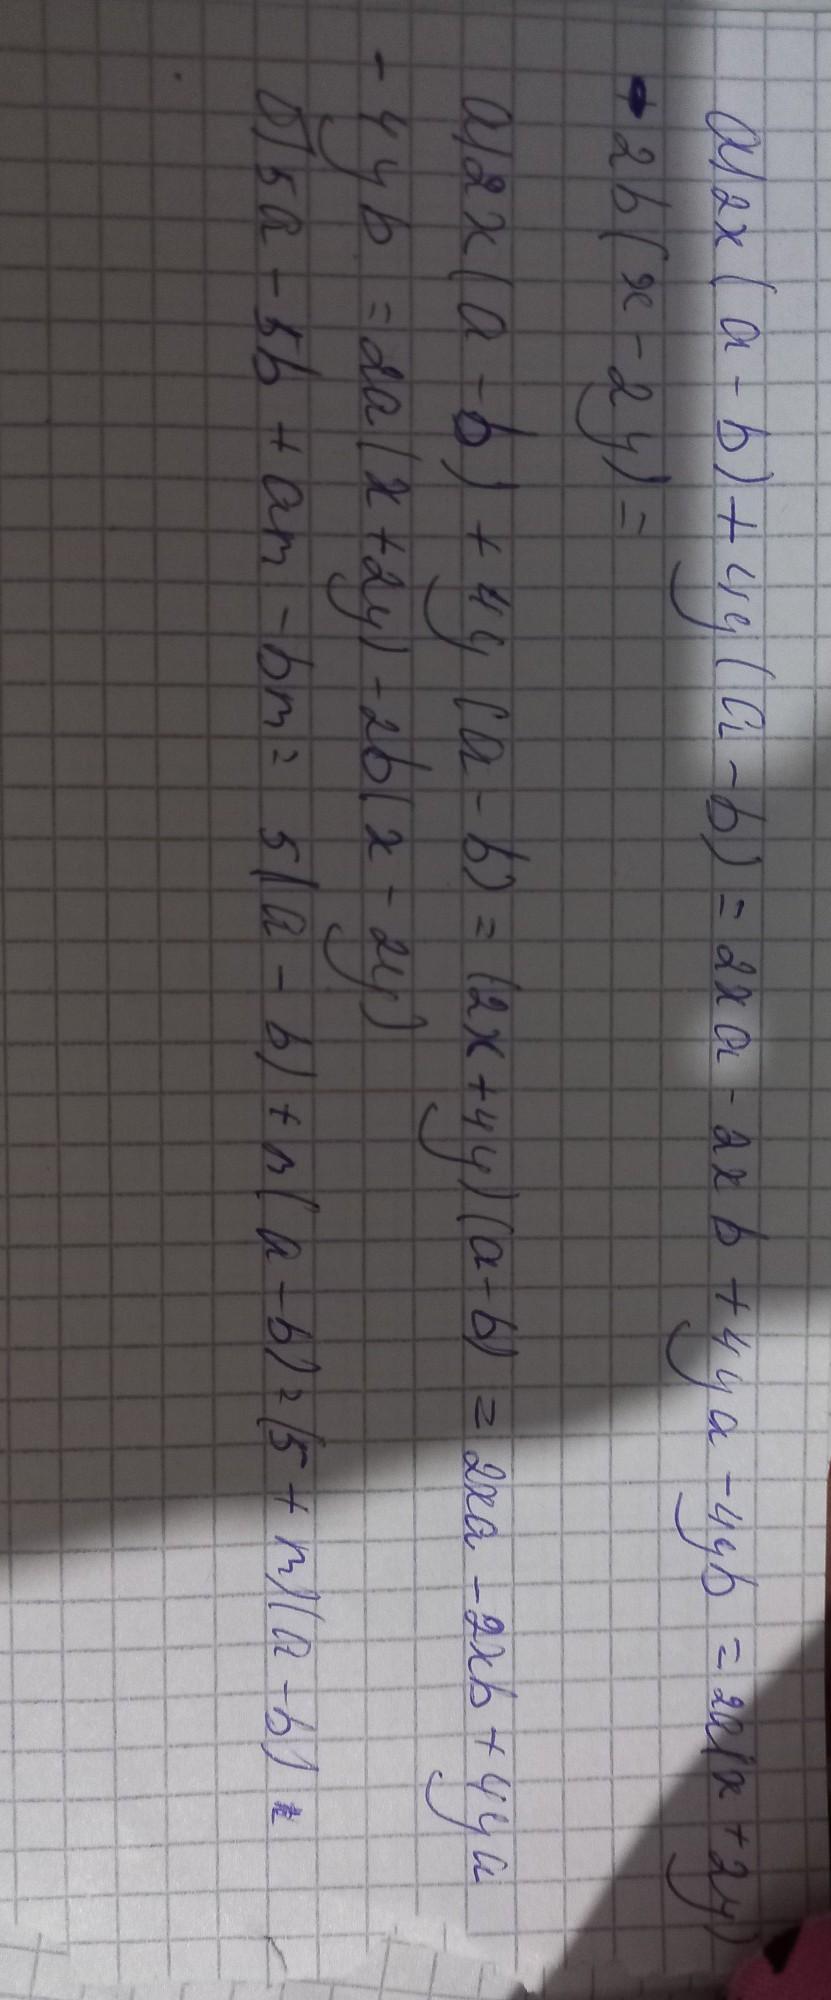 а) 2x(a-b)+4y(a-b)=2xa-2xb+4ya-4yb=2a(x+2y)
-2b(x-2y)=
а) 2x(a-b)+4y(a-b)=(2x+4y)(a-b)=2xa-2xb+4ya
-4yb=2a(x+2y)-2b(x-2y)
б) 5a-5b+am-bm=5(a-b)+m(a-b)=(5+m)(a-b)=